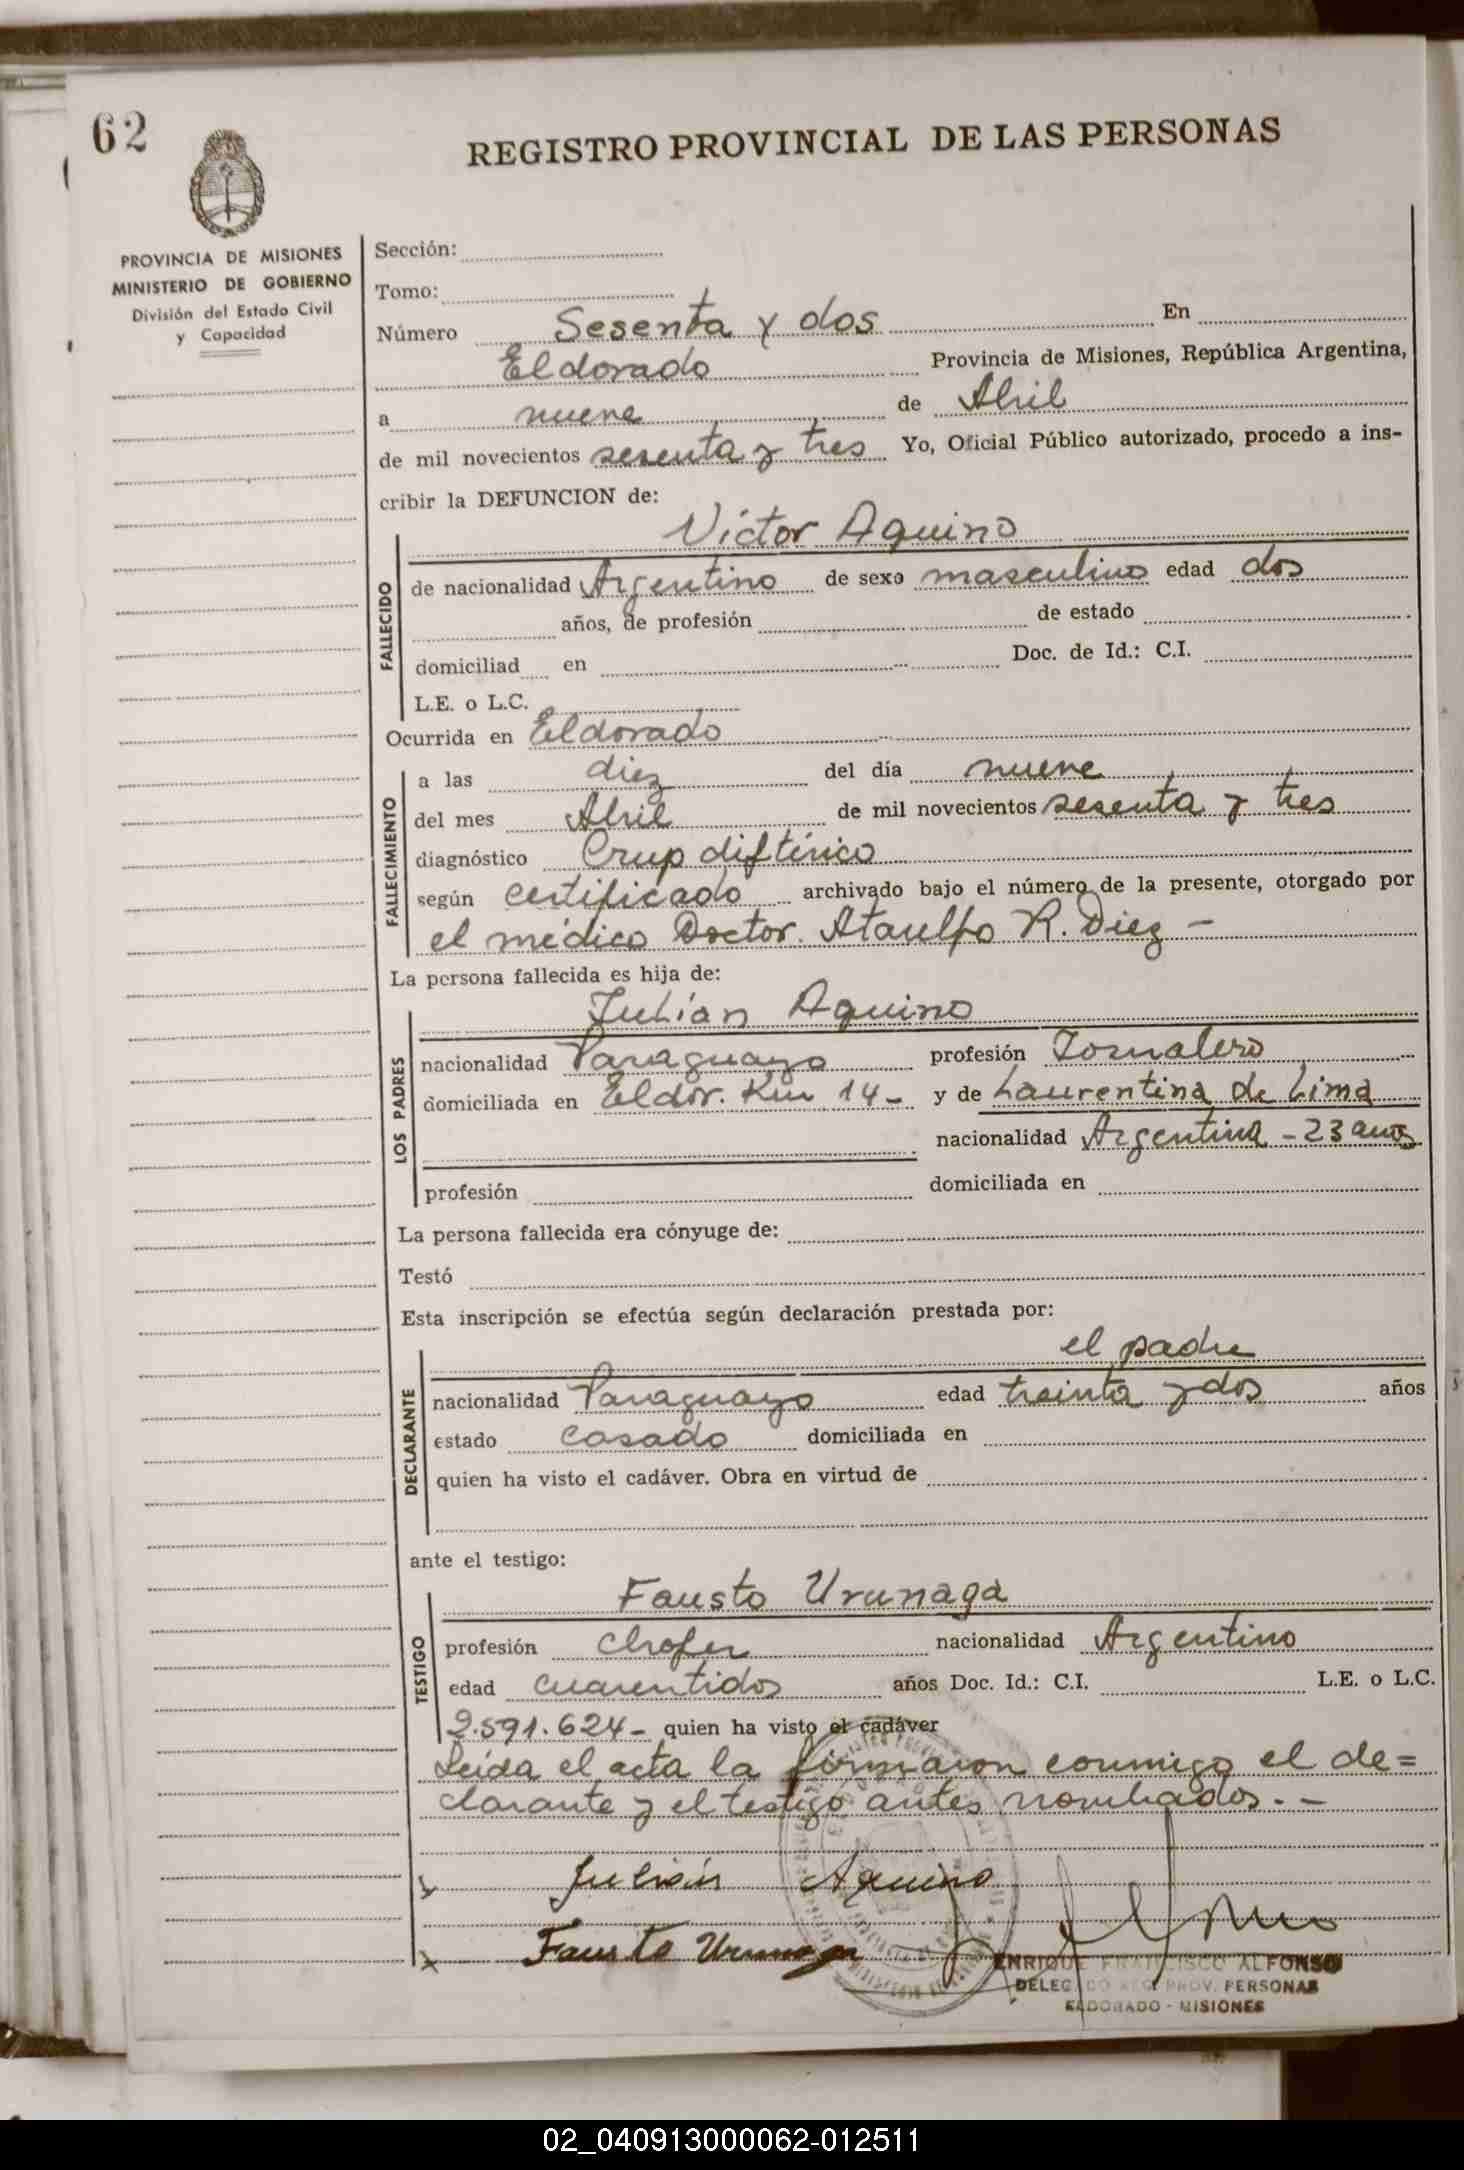 62
REGISTRO PROVINCIAL DE LAS PERSONAS
PROVINCIA DE MISIONES
MINISTERIO DE GOBIERNO
División del Estado Civil
y Capacidad
Sección:
Tomo:
Número Sesenta y dos En
Eldorado Provincia de Misiones, República Argentina,
a nueve de Abril
de mil novecientos sesenta y tres Yo, Oficial Público autorizado, procedo a ins-
cribir la DEFUNCION de:
Víctor Aquino
FALLECIDO
de nacionalidad Argentino de sexo masculino edad dos
años, de profesión de estado
domiciliad en Doc. de Id.: C.I.
L.E. o L.C.
Ocurrida en Eldorado
FALLECIMIENTO
a las diez del día nueve
del mes Abril de mil novecientos sesenta y tres
diagnóstico Crup diftérico
según certificado archivado bajo el número de la presente, otorgado por
el médico Doctor. Ataulfo R. Diez -
La persona fallecida es hija de:
Julián Aquino
LOS PADRES
nacionalidad Paraguayo profesión Jornalero
domiciliada en Eldor. Km 14- y de Laurentina de Lima
nacionalidad Argentina - 23 anos
profesión domiciliada en
La persona fallecida era cónyuge de:
Testó
Esta inscripción se efectúa según declaración prestada por:
el padre
DECLARANTE
nacionalidad Paraguayo edad treinta y dos años
estado casado domiciliada en
quien ha visto el cadáver. Obra en virtud de
ante el testigo:
Fausto Urunaga
TESTIGO
profesión Chofer nacionalidad Argentino
edad cuarentidos años Doc. Id.: C.I. L.E. o L.C.
2.591.624- quien ha visto el cadáver
Leída el acta la firmaron conmigo el de=
clarante y el testigo antes nombrados. -
Julián Aquino
Fausto Urunaga
ENRIQUE FRANCISCO ALFONSO
DELEGADO REG. PROV. PERSONAS
ELDORADO - MISIONES
02_040913000062-012511